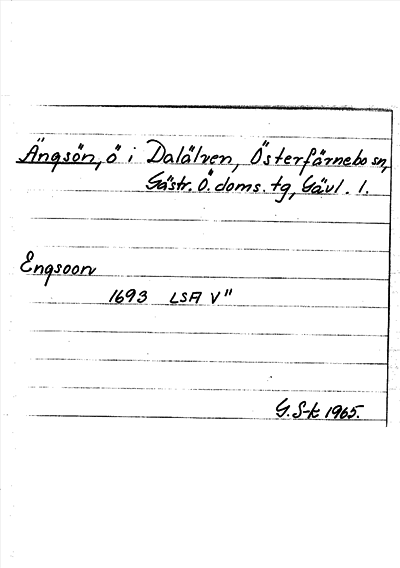 Ängsön, ö i Dalälven, Österfärnebo sn,
Gästr. Ö. doms. tg, Gävl. l.
Engsoon
1693 LSA V"
G. S-k 1965.